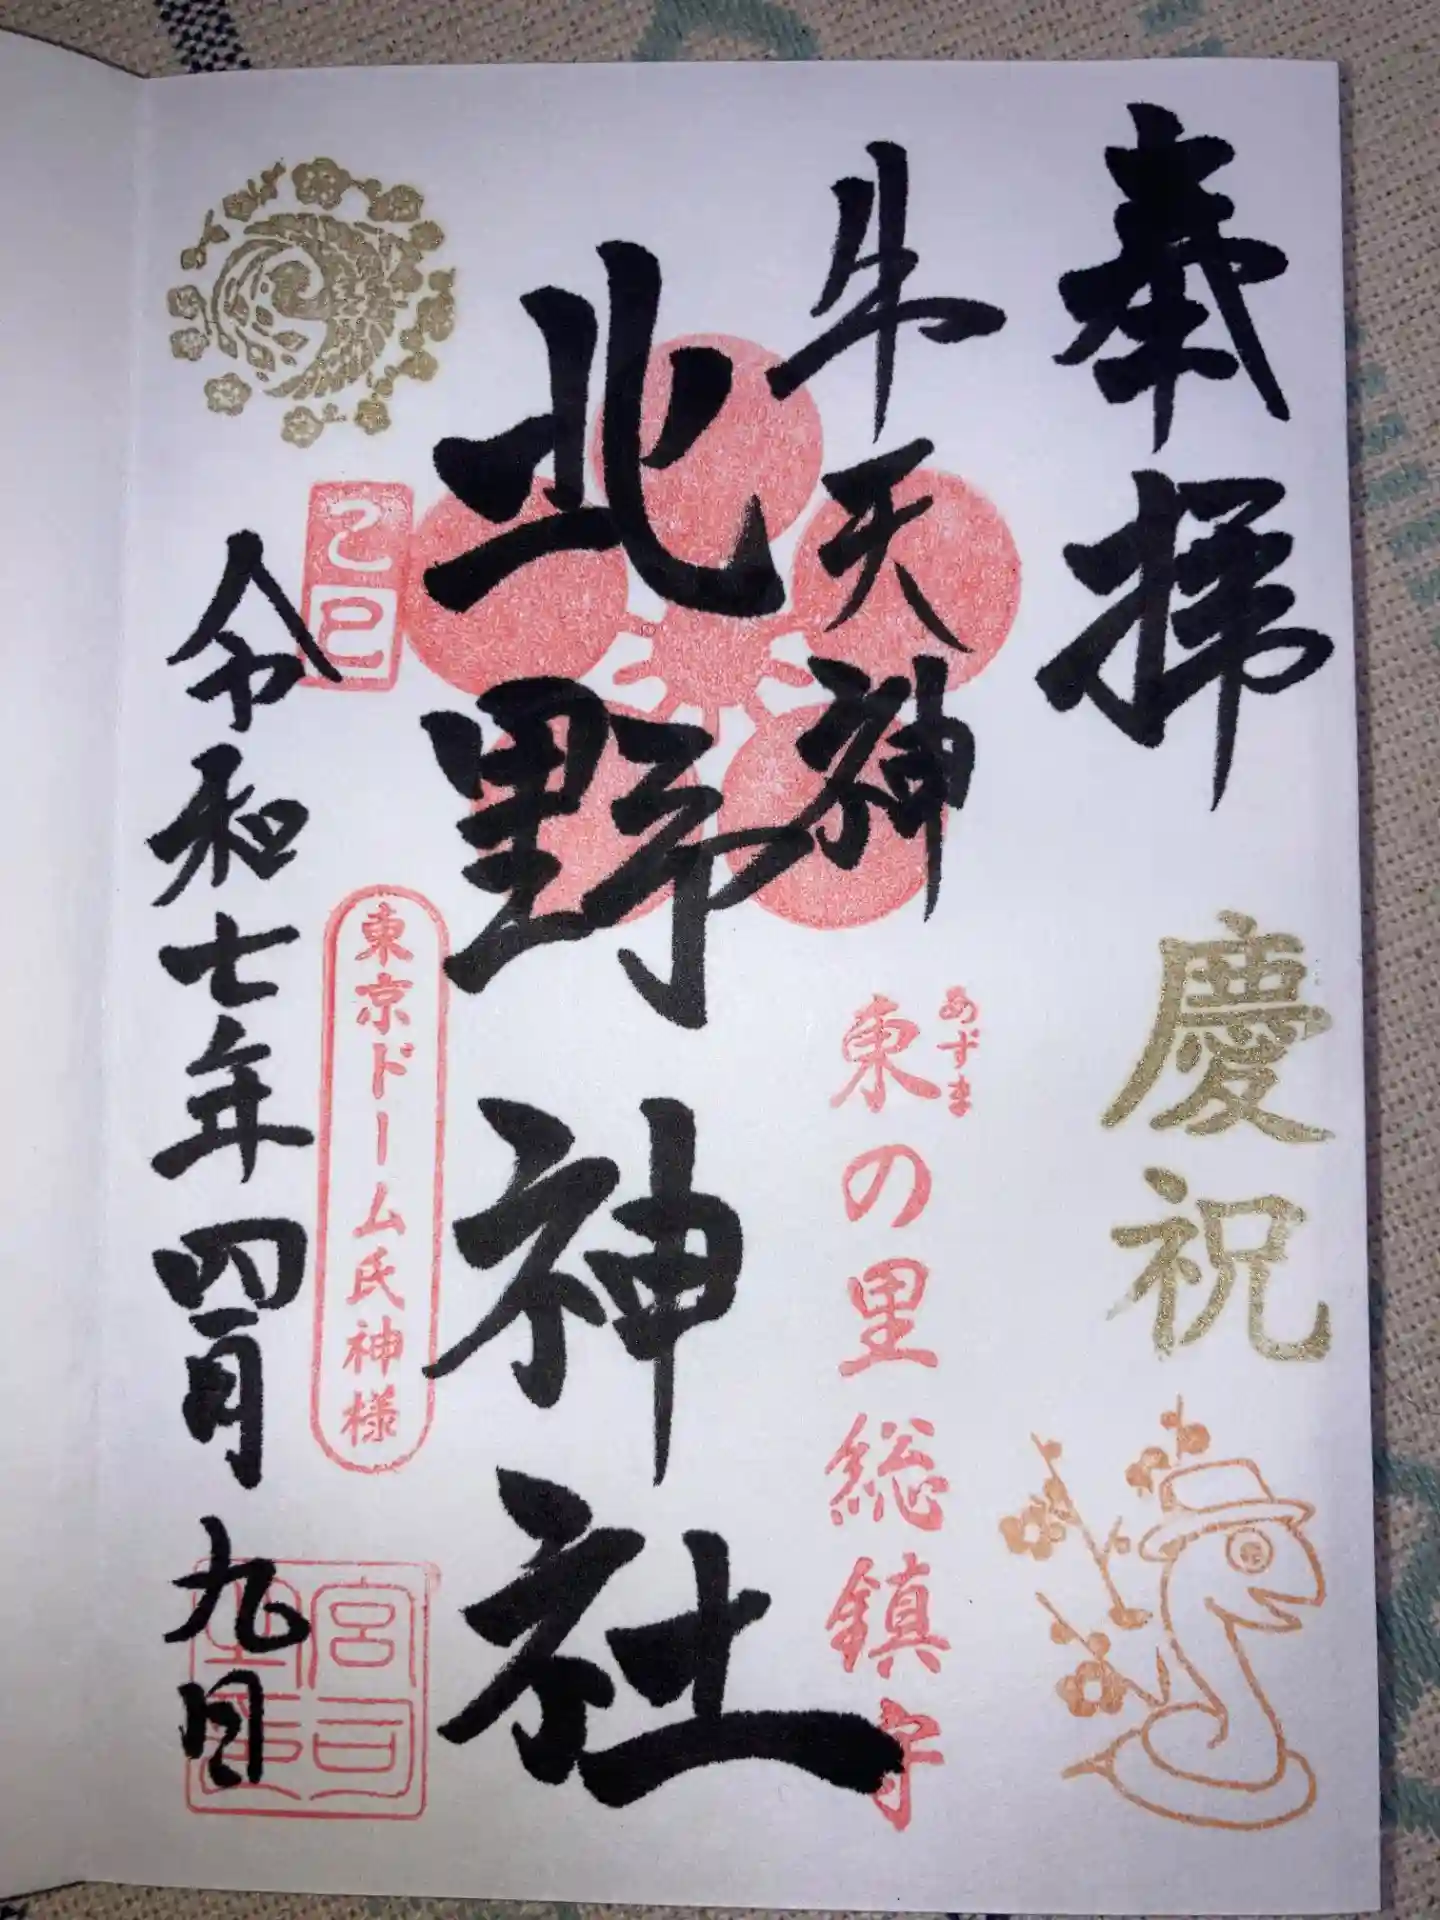 奉拝
慶祝
牛天神
あずま
東の里総鎮守
北野神社
乙巳
東京ドーム氏神様
令和七年四月九日
宮司